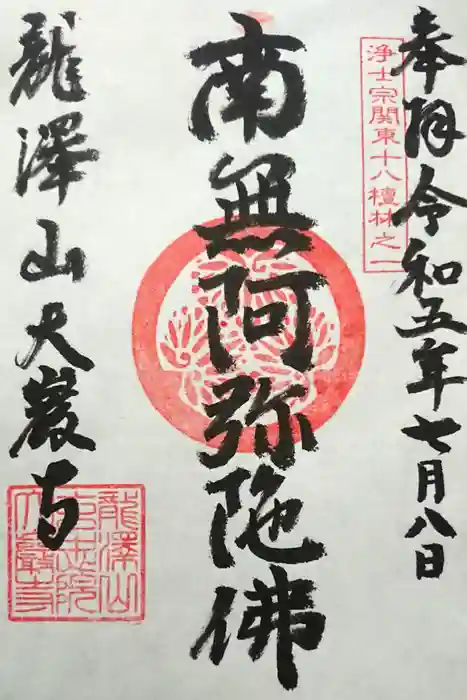 奉拝令和五年七月八日
浄土宗關東十八檀林之一
南無阿弥陀佛
龍澤山大巖寺
龍澤山
玄忠院
大巖寺